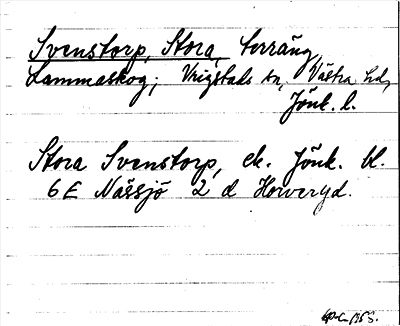 Svenstorp, Stora, terräng,
Lammaskog; Vrigstads sn, Västra hd,
Jönk. l.
Stora Svenstorp, ek. Jönk. bl.
6E Nässjö 2 d Horveryd.